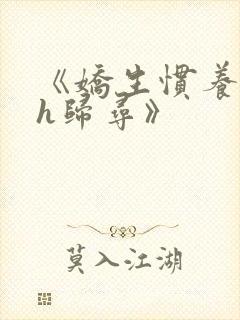 《嬌生慣養
h歸尋》
莫入江湖